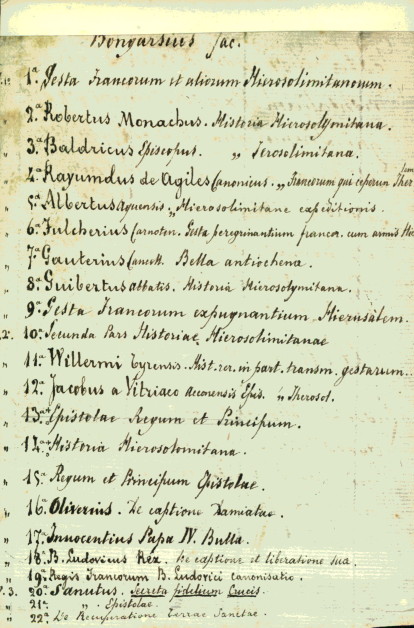 Bongarsius Jac.
1ª Gesta Francorum et aliorum Hierosolimitanorum.
" 2.ª Robertus Monachus. Historia Hierosolymitana.
" 3.ª Baldricus Episcopus. " Jerosolimitana.
" 4.ª Raymundus de Agiles Canonicus. " Francorum qui ceperun Iher
" 5.ª Albertus Aquensis. " Hierosolimitane expeditionis.
" 6.ª Fulcherius Carnoten. Gesta peregrinantium francor. cum armis Hie
" 7.ª Gauterius Cancell. Bella antiochena.
" 8.ª Guibertus abbatis. Historia Hierosolymitana.
" 9.ª Gesta Francorum expugnantium Hierusalem.
2. 10.ª Secunda Pars Historiae Hierosolimitanae
" 11.ª Willermi Tyrensis. Hist. rer. in part. transm. gestarum.
" 12.ª Jacobus a Vitriaco Acconensis Epis. " Iherosol.
" 13.ª Epistolae Regum et Principum.
" 14.ª Historia Hierosolomitana.
" 15.ª Regum et Principum Epistolae.
" 16.ª Oliverius. De captione Damiatae.
" 17.ª Innocentius Papa IV. Bulla.
" 18.ª B. Ludovicus Rex. De captione et liberatione sua.
" 19.ª Regis Francorum B. Ludovici canonisatio.
P. 3. 20.ª Sanutus. Secreta fidelium Crucis
" 21.ª " Epistolae.
" 22.ª De Recuperatione Terrae Sanctae.